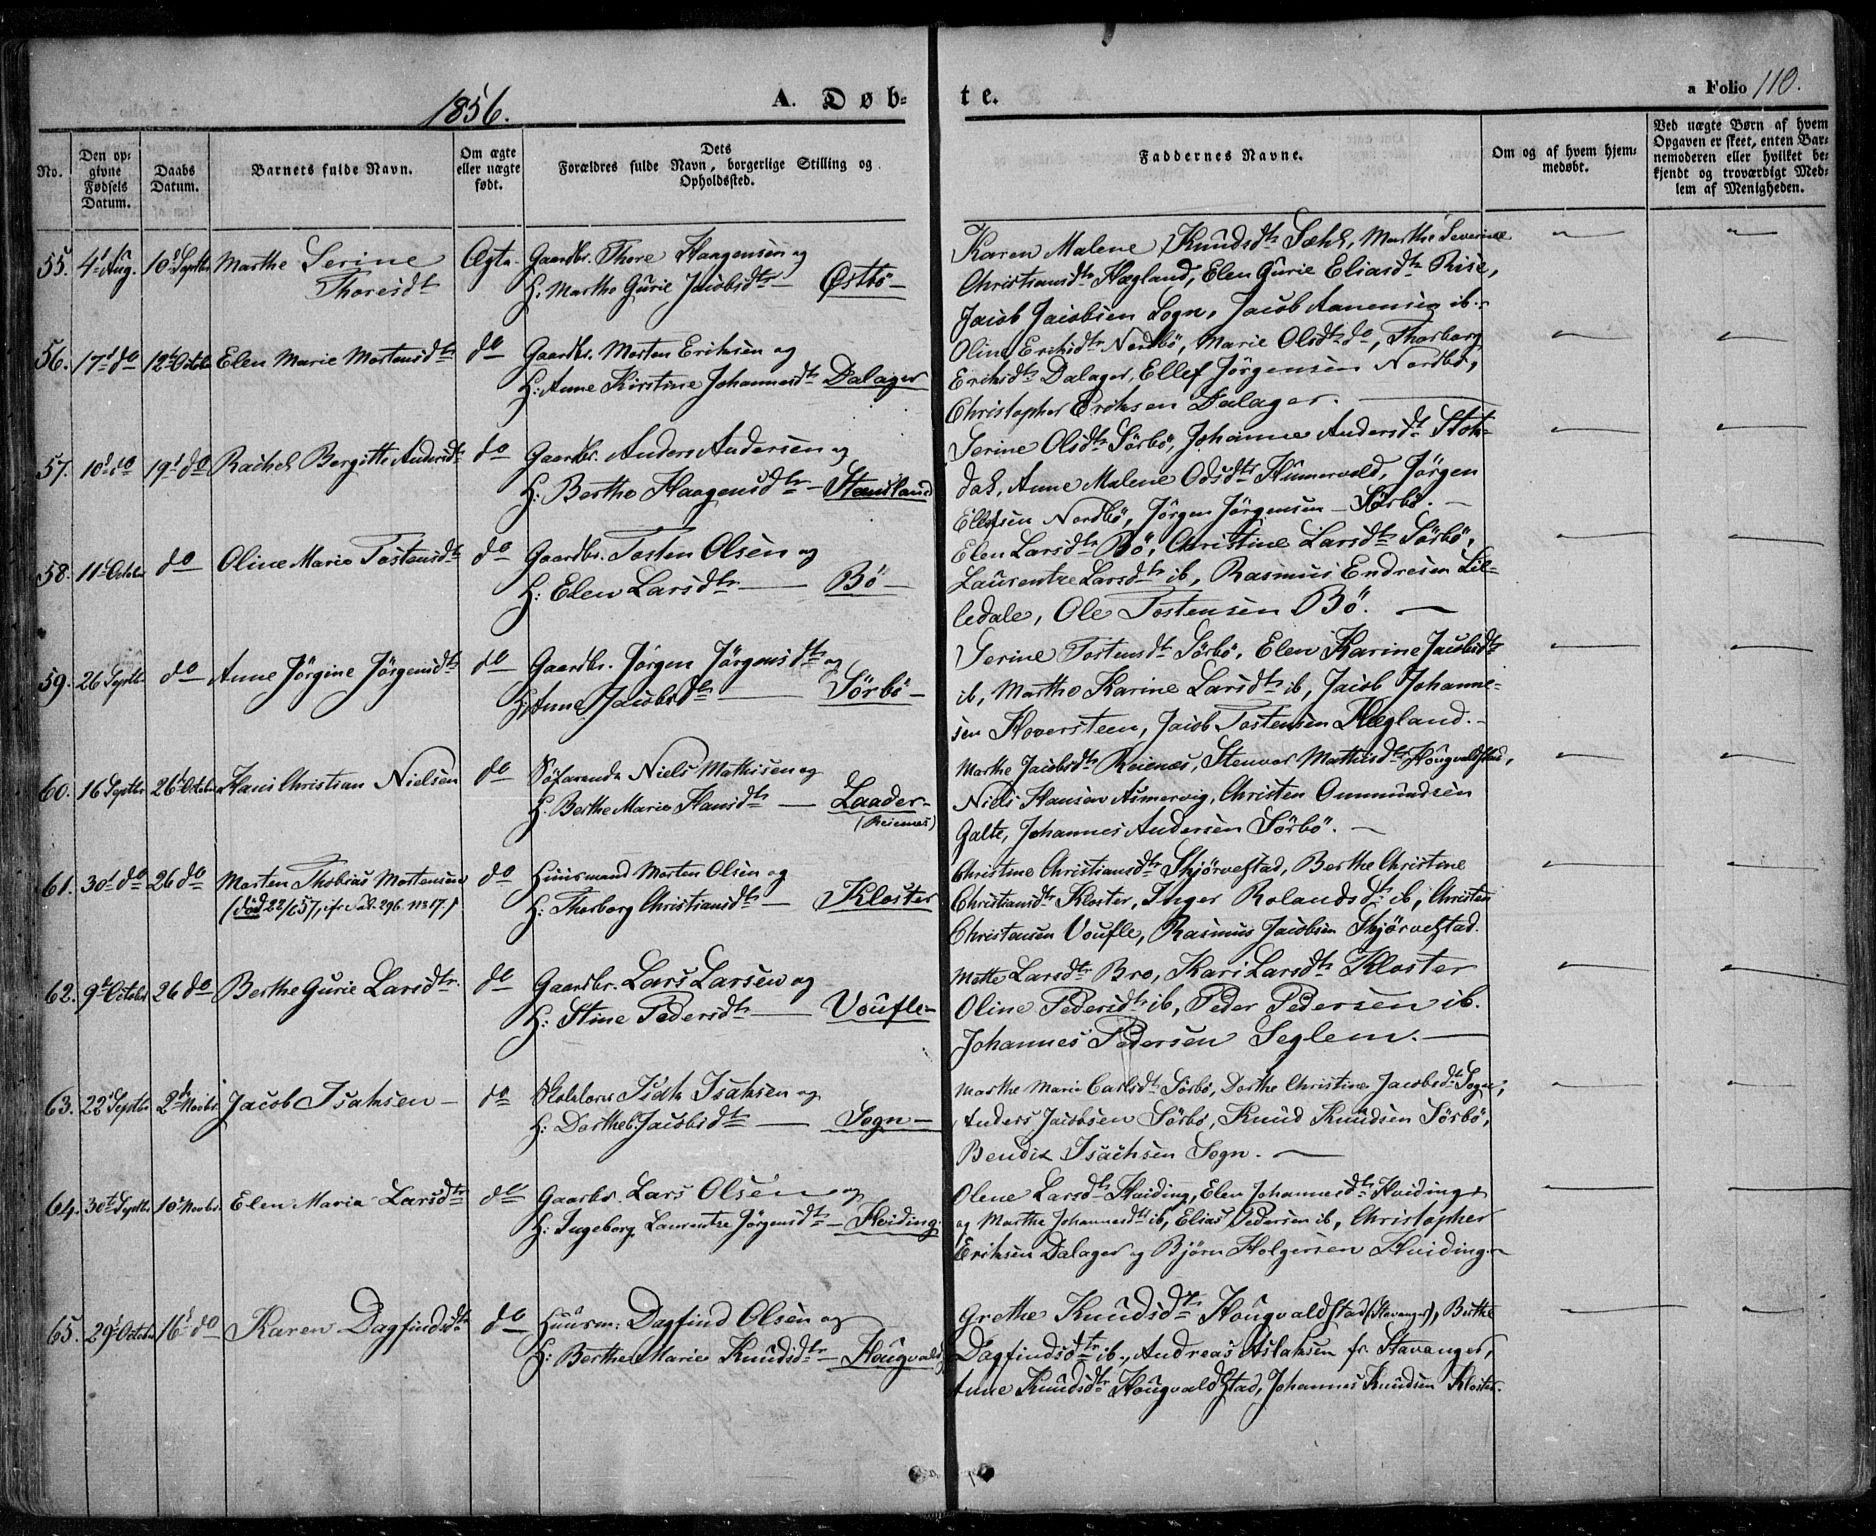 1856.
A. Døb-
te.
a Folio 110.
No.
Den op-
givne
Fødsels
Datum.
Daabs
Datum.
Barnets fulde Navn.
Om ægte
eller uægte
født.
Dets
Forældres fulde Navn, borgerlige Stilling og
Opholdssted.
Faddernes Navne.
Om og af hvem hjem-
medøbt.
Ved uægte Børn af hvem
Opgaven er skeet, enten Bar-
nemoderen eller hvilket be-
kjendt og troværdigt Med-
lem af Menigheden.
55. 4d Aug. 10d Septbr Marthe Serine
Thoresdtr
Ægte. Gaardbr. Thore Haagensen og
H: Marthe Gurie Jacobsdtr — Østbö —
Karen Malene Knudsdtr Sæhl, Marthe Severine
Christiansdtr Hægland, Elen Gurie Eliasdtr Rise,
Jacob Jacobsen Sogn, Jacob Aanensen ib.
56. 17d do 12te Octobr Elen Marie Mortensdtr do Gaardbr. Morten Eriksen og
H: Anne Kirstine Johannesdtr Dalager
Oline Eriksdtr Nordbö, Marie Olsdtr do, Thorborg
Eriksdtr Dalager, Ellef Jörgensen Nordbö,
Christopher Eriksen Dalager.
57. 10d do 19d do Rachel Bergitte Andersdtr do Gaardbr. Anders Andersen og
H: Berthe Haagensdtr — Hausland
Serine Olsdtr Sörbö, Johanne Andersdtr Stok-
dal, Anne Malene Odsdtr Hummervold, Jörgen
Ellefsen Nordbö, Jörgen Jörgensen — Sörbö. —
58. 11te Octobr do Oline Marie Tostensdtr do Gaardbr. Tosten Olsen og
H: Elen Larsdtr — Bö —
Elen Larsdtr Bö, Christine Larsdtr Sörbö,
Laurentze Larsdtr ib, Rasmus Endresen Lil-
ledale, Ole Tostensen Bö. —
59. 26 Septbr do Anne Jörgine Jörgensdtr do Gaardbr. Jörgen Jörgensdtr og
H: Anne Jacobsdtr — Sörbö —
Serine Tostensdtr Sörbö, Elen Karine Jacobsdtr
ib, Marthe Karine Larsdtr ib, Jacob Johanne-
sen Hoversteen, Jacob Tostensen Hægland. —
60. 16 Septbr 26te Octobr Hans Christian Nielsen do Söfarende Niels Mathisen og
H. Berthe Marie Hansdtr — Laader-
(Reienes)
Marthe Jacobsdtr Reienæs, Stenvor Mathisdtr Hougvaldstad,
Niels Hansen Asmervig, Christen Ommundsen
Galte, Johannes Andersen Sörbö. —
61. 30d do 26 do Morten Thobias Mortensen do Huusmand Morten Olsen og
(død 22/6 57, cfr. Fol. 296 No 17.)
H: Thorborg Christiansdtr — Kloster
Christine Christiansdtr Skjörvestad, Berthe Christine
Christiansdtr Kloster, Inger Rolandsdtr ib, Christen
Christensen Voufle, Rasmus Jacobsen Skjörvestad.
62. 9de Octobr 26 do Berthe Gurie Larsdtr. do Gaardbr. Lars Larsen og
H: Stine Pedersdtr — Voufle —
Mette Larsdtr Bro, Kari Larsdtr Kloster
Oline Pedersdtr ib, Peder Pedersen ib.
Johannes Pedersen Seglem. —
63. 22 Septbr 2den Novbr Jacob Isaksen — do Skolelærer Isak Isaksen og
H: Dorthe B. Jacobsdtr — Sogn —
Marthe Marie Carlsdtr Sörbö, Dorthe Christine Jacobsdtr Sogn,
Anders Jacobsen Sörbö, Knud Knudsen Sörbö,
Bendix Isachsen Sogn. —
64. 30te Septbr 10d Novbr. Elen Maria Larsdtr do Gaardbr. Lars Olsen og
H: Ingeborg Laurentze Jörgensdtr — Hviding.
Olene Larsdtr Hviding, Elen Johannesdtr Hviding
og Marthe Johannesdtr ib, Elias Pedersen ib, Christopher
Eriksen Dalager og Björn Holgersen Hviding —
65. 29d Octobr 16d do Karen Dagfindsdtr do Huusm: Dagfind Olsen og
H: Berthe Marie Knudsdtr — Hougvald
Grethe Knudsdtr Hougvaldstad (Stavanger), Berthe
Dagfindsdtr ib., Andreas Aslaksen fr. Stavanger,
Anne Knudsdtr Hougvaldstad, Johannes Knudsen Kloster.